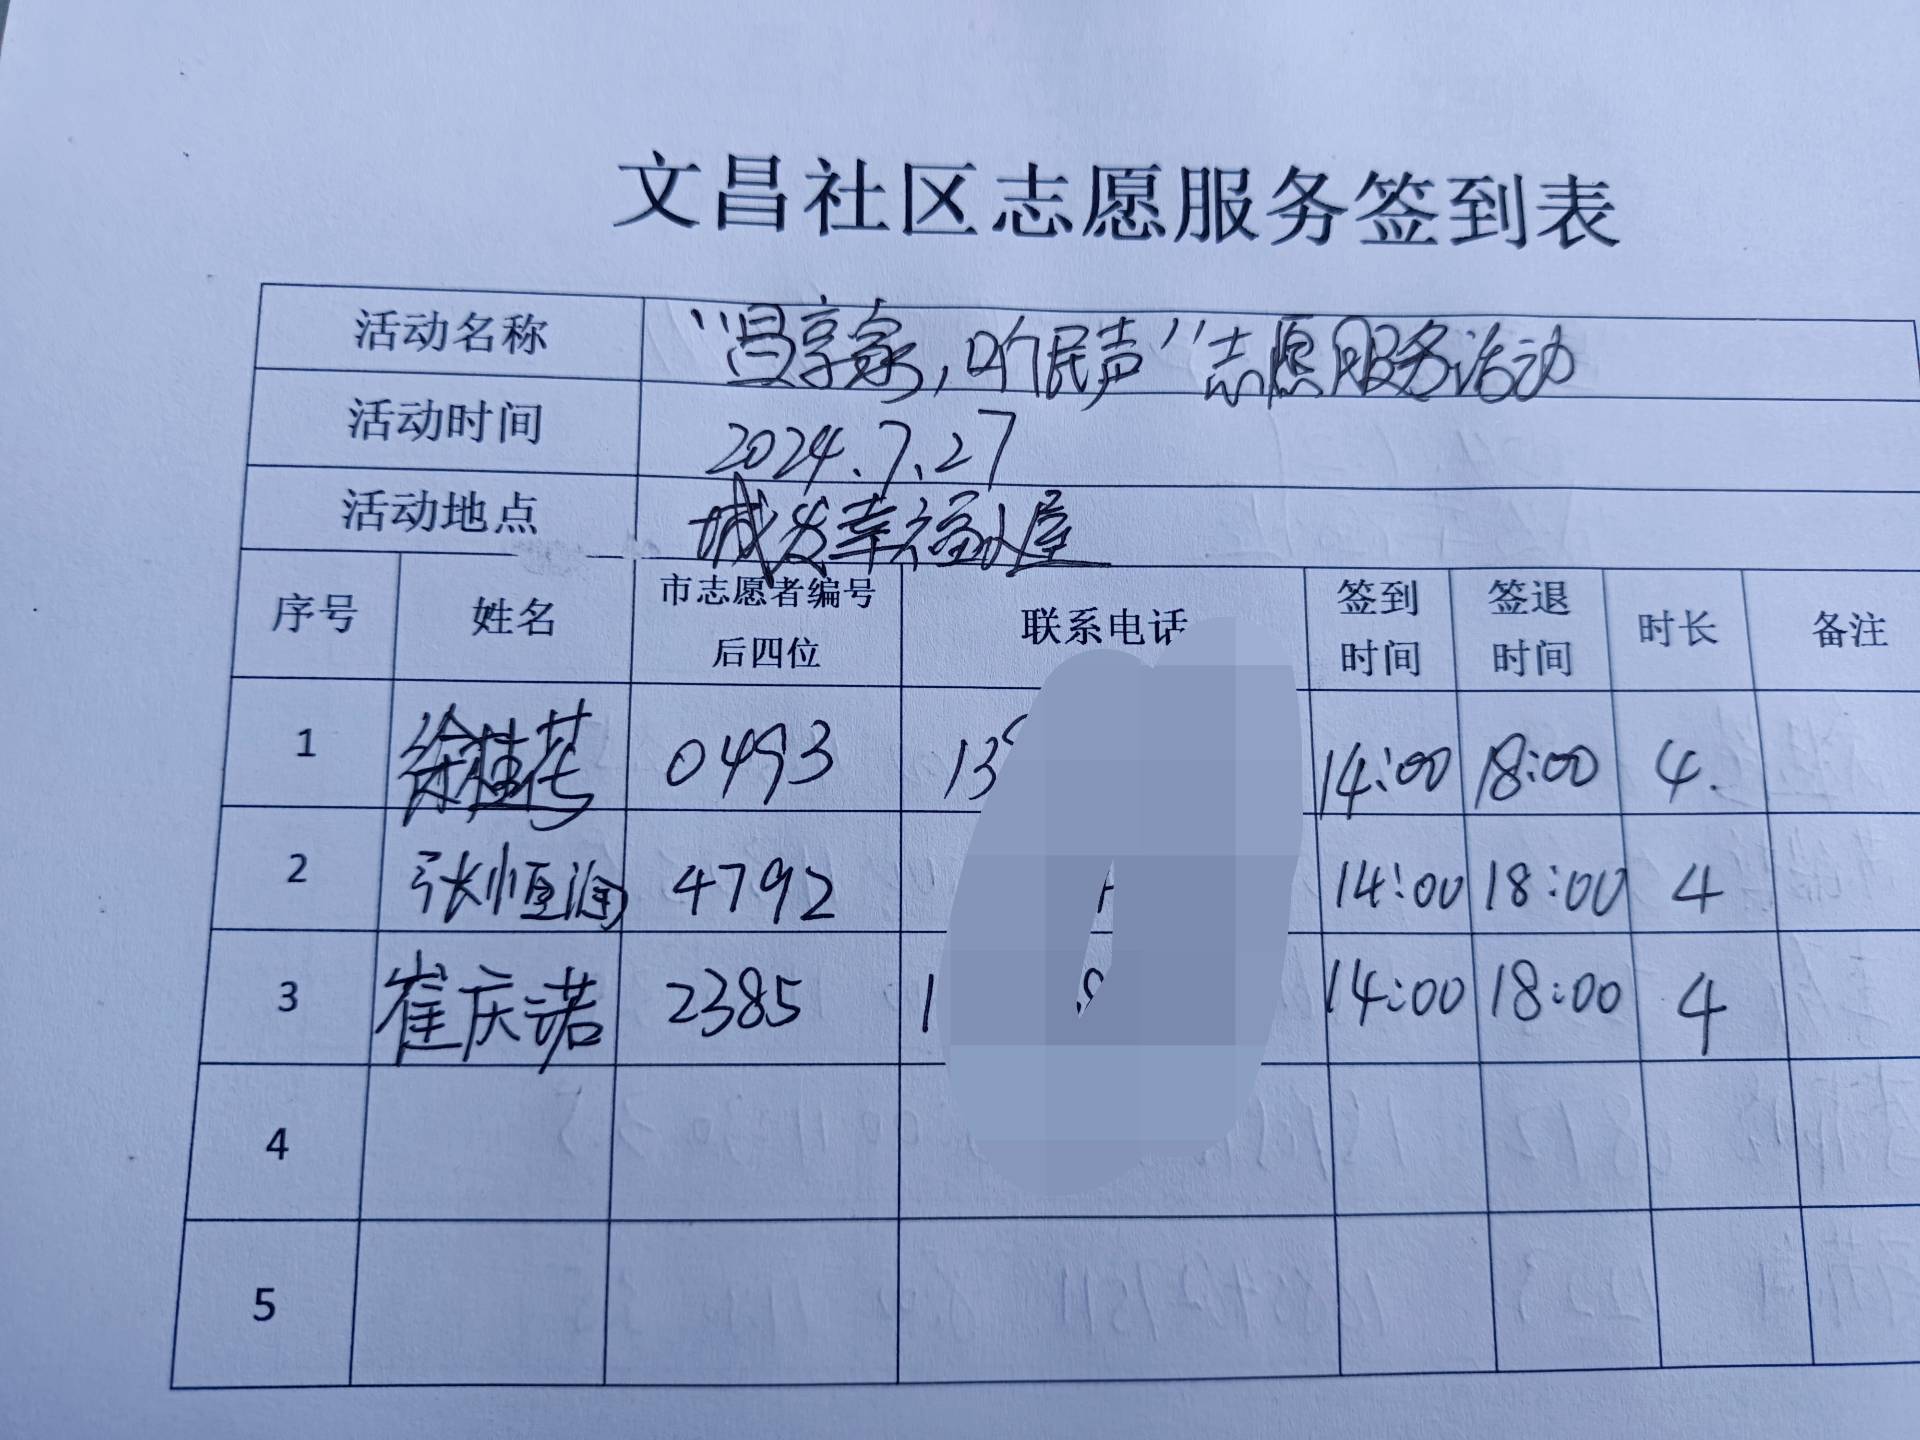 文昌社区志愿服务签到表
活动名称 “昌享家,听民声”志愿服务活动
活动时间 2024.7.27
活动地点 城发幸福小屋
序号 姓名 市志愿者编号后四位 联系电话 签到时间 签退时间 时长 备注
1 徐桂花 0493 13 14:00 18:00 4.
2 张恒润 4792 14:00 18:00 4
3 崔庆诺 2385 1 14:00 18:00 4
4
5